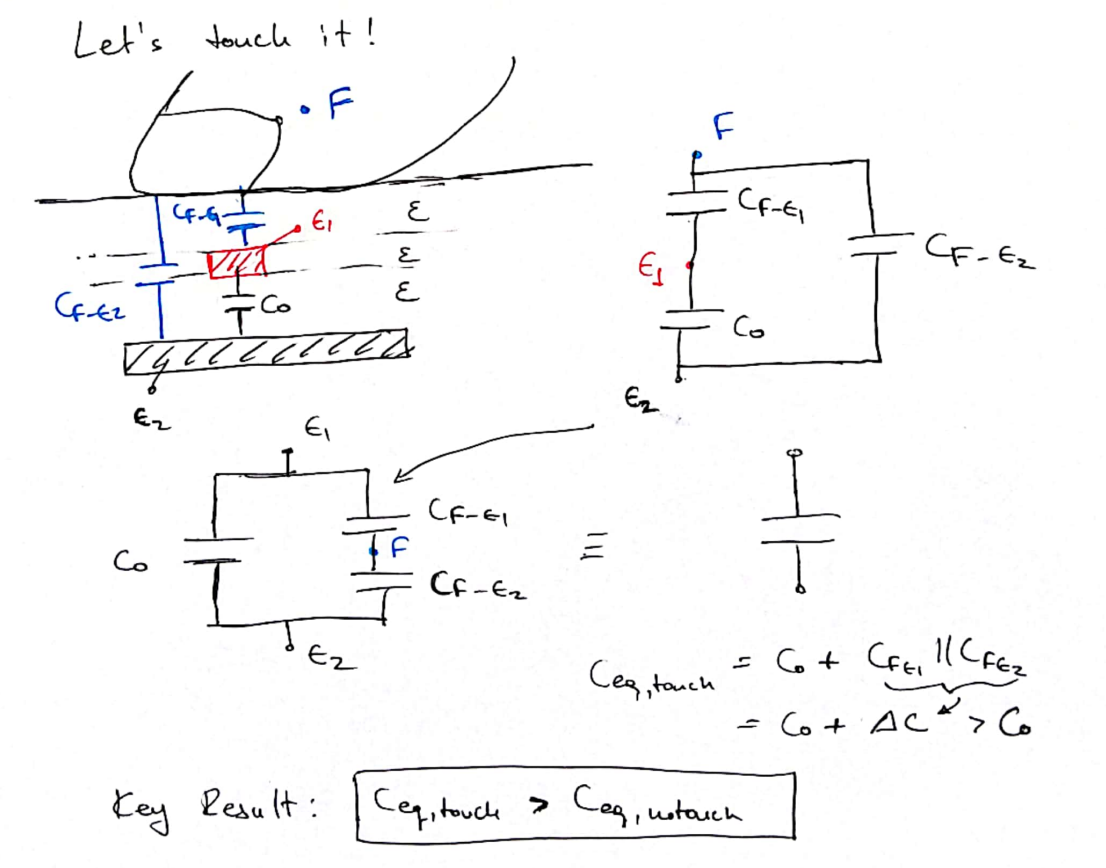 Let's touch it!
F
C_{F-E1}
E1
ε
ε
ε
C_{F-E2}
C0
E2
F
C_{F-E1}
E1
C_{F-E2}
C0
E2
E1
C_{F-E1}
C0
F
≡
C_{F-E2}
E2
C_{eq,touch} = C0 + C_{FE1} || C_{FE2}
= C0 + ΔC > C0
Key Result: C_{eq,touch} > C_{eq,notouch}